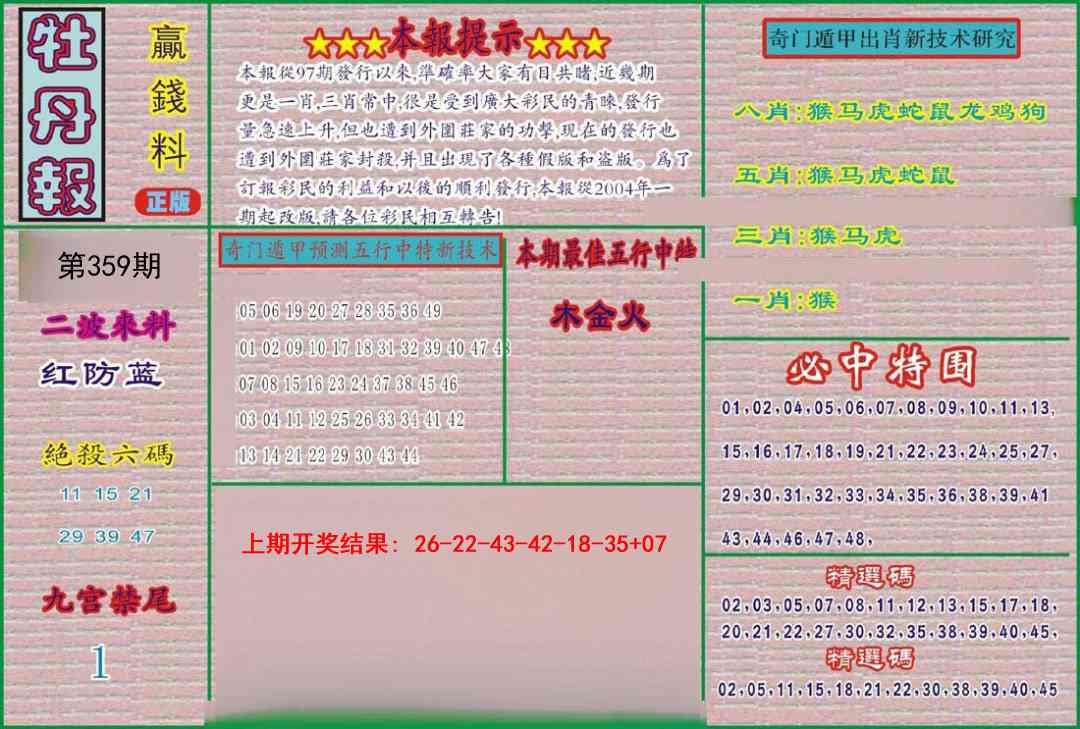 牡丹報
贏錢料
正版
第359期
二波來料
红防蓝
絕殺六碼
11 15 21
29 39 47
九宫禁尾
1
★★★本報提示★★★
本報從97期發行以來,準確率大家有目共睹,近幾期
更是一肖,三肖常中,很是受到廣大彩民的青睞,發行
量急速上升,但也遭到外圍莊家的功擊,現在的發行也
遭到外圍莊家封殺,并且出現了各種假版和盗版。爲了
訂報彩民的利益和以後的順利發行,本報從2004年一
期起改版,請各位彩民相互轉告!
奇门遁甲预测五行中特新技术
05 06 19 20 27 28 35 36 49
01 02 09 10 17 18 31 32 39 40 47 48
07 08 15 16 23 24 37 38 45 46
03 04 11 12 25 26 33 34 41 42
13 14 21 22 29 30 43 44
本期最佳五行中特
木金火
上期开奖结果: 26-22-43-42-18-35+07
奇门遁甲出肖新技术研究
八肖:猴马虎蛇鼠龙鸡狗
五肖:猴马虎蛇鼠
三肖:猴马虎
一肖:猴
必中特围
01,02,04,05,06,07,08,09,10,11,13,
15,16,17,18,19,21,22,23,24,25,27,
29,30,31,32,33,34,35,36,38,39,41
43,44,46,47,48,
精選碼
02,03,05,07,08,11,12,13,15,17,18,
20,21,22,27,30,32,35,38,39,40,45,
精選碼
02,05,11,15,18,21,22,30,38,39,40,45